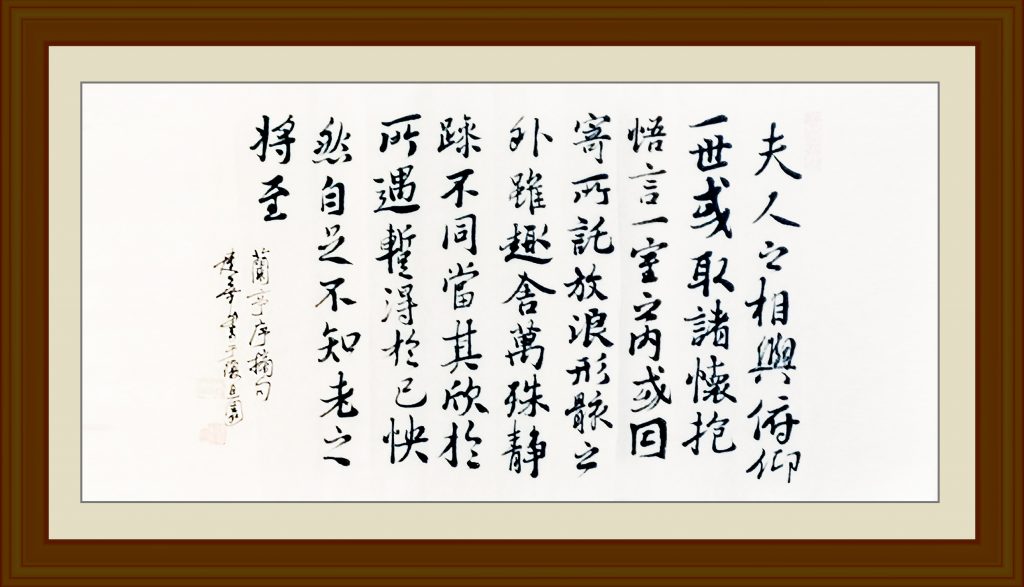 夫人之相與俯仰
一世或取諸懷抱
悟言一室之內或因
寄所託放浪形骸之
外雖趣舍萬殊靜
躁不同當其欣於
所遇暫得於己怏
然自足不知老之
將至
蘭亭序摘句